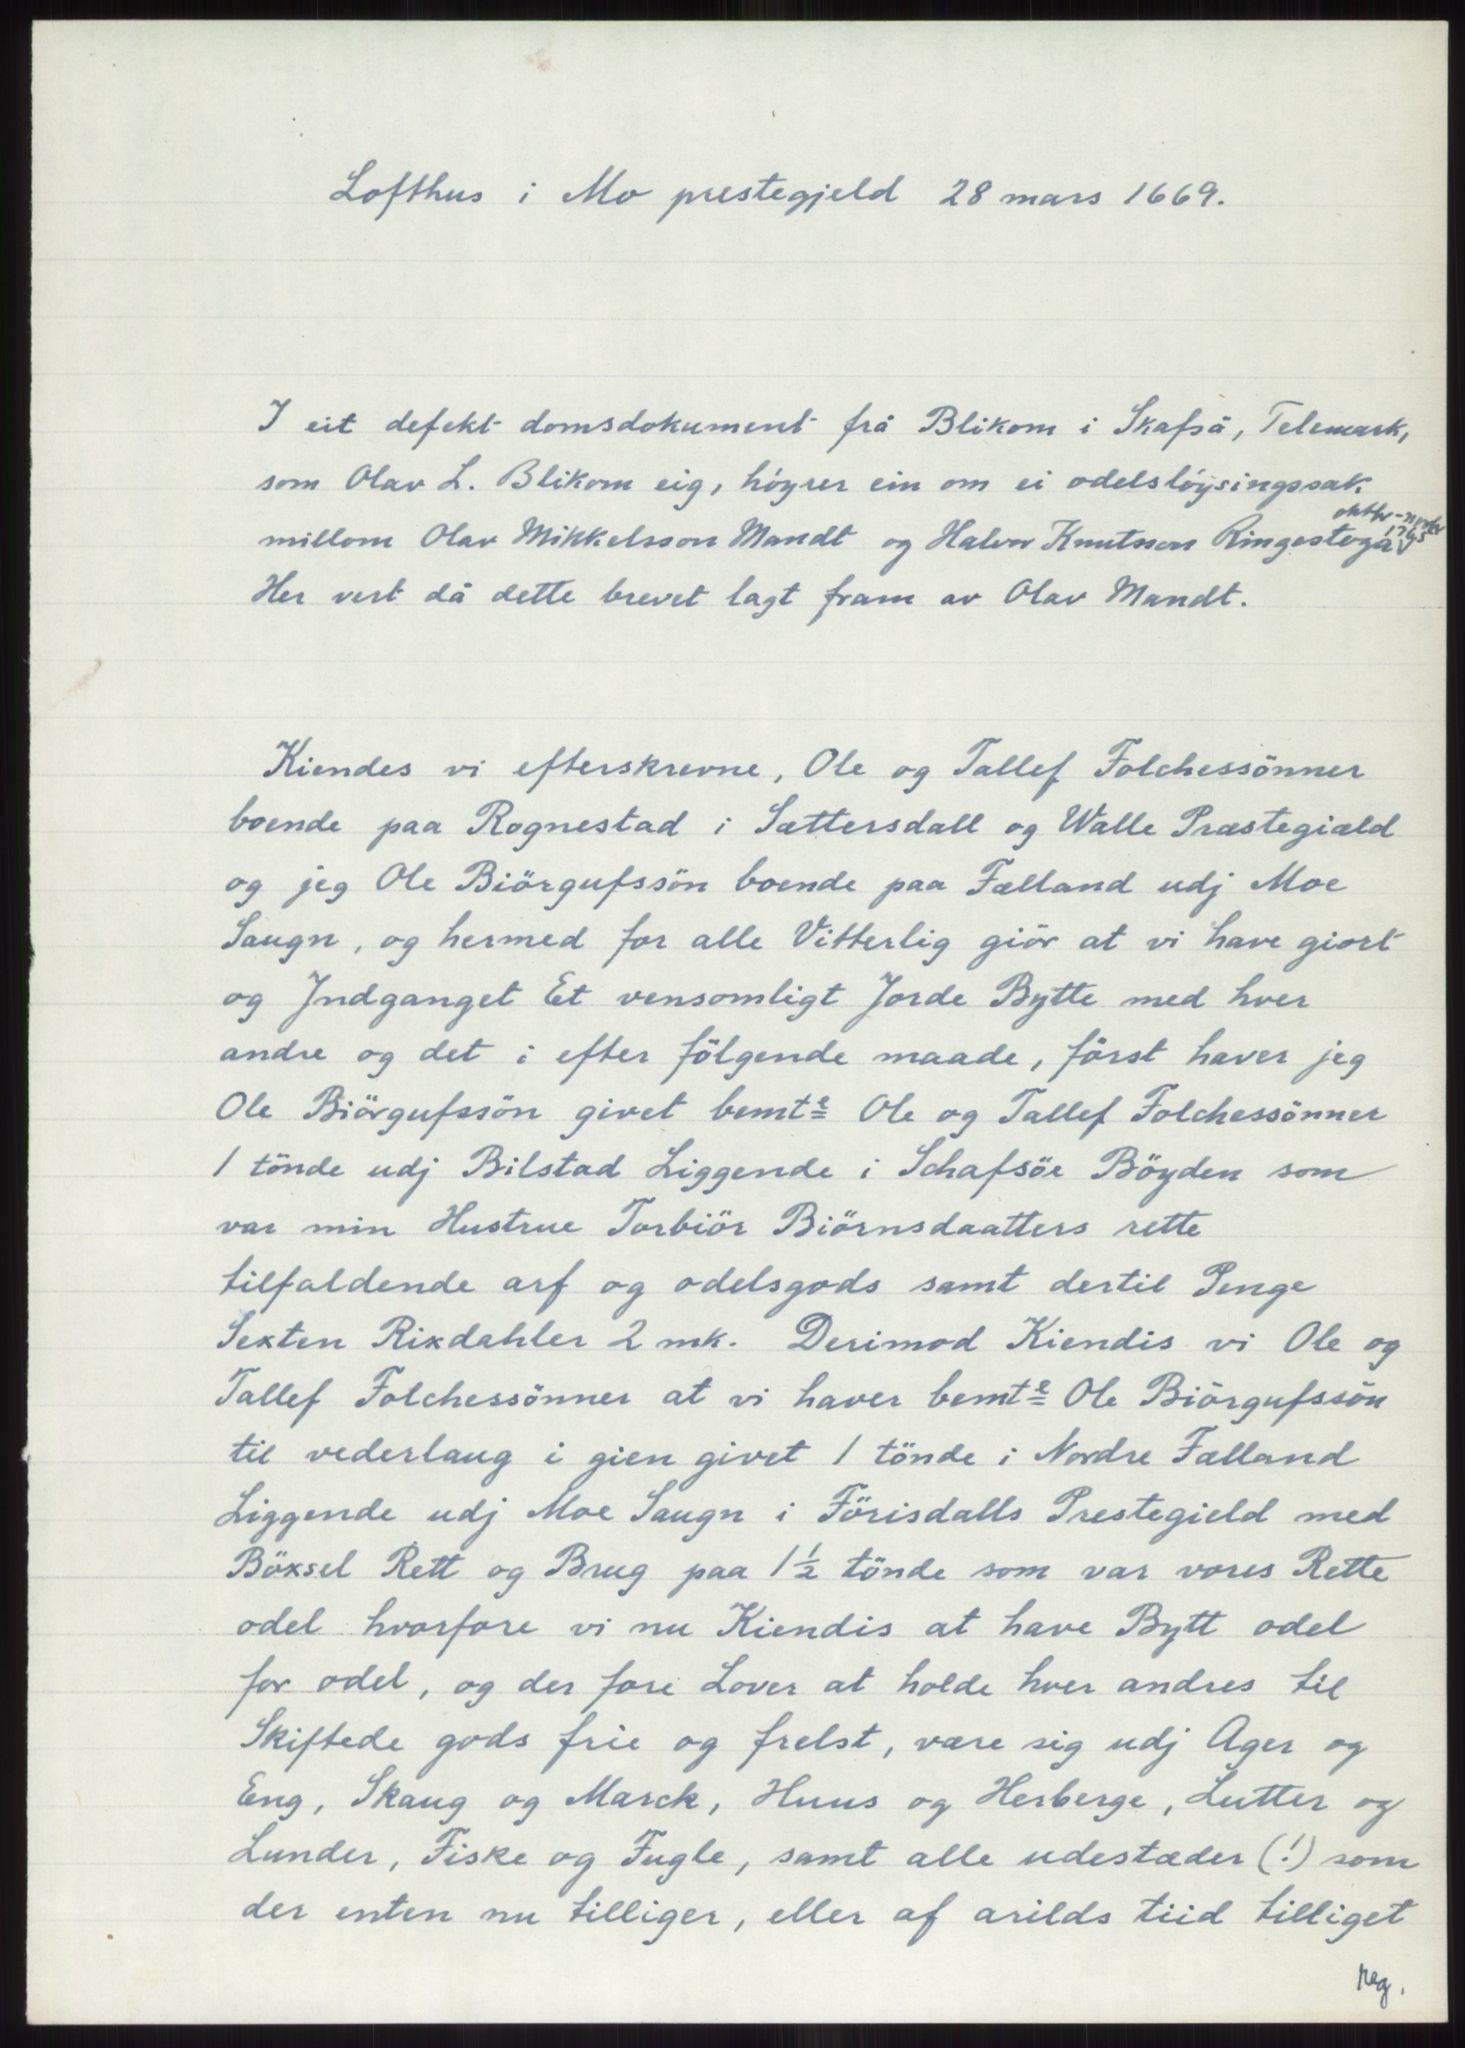 Lofthus i Mo prestegjeld 28 mars 1669.
I eit defekt domsdokument frå Blikom i Skafså, Telemark,
som Olav L. Blikom eig, höyrer ein om ei odelslöysingssak
millom Olav Mikkelsson Mandt og Halvor Knutson Ringestoga
Her vert då dette brevet lagt fram av Olav Mandt.
Kiendes vi efterskrevne, Ole og Tallef Folchessönner
boende paa Rognestad i Sættersdall og Walle Præstegiæld
og jeg Ole Biörgufssön boende paa Fælland udj Moe
Saugn, og hermed for alle Vitterlig giör at vi have giort
og Jndganget Et vensomligt Jorde Bytte med hver
andre og det i efter fölgende maade, först haver jeg
Ole Biörgufssön givet bemte Ole og Tallef Folchessönner
1 tönde udj Bilstad Liggende i Schafsöe Böyden som
var min Hustrue Torbiör Biörnsdaatters rette
tilfaldende arf og odelsgods samt dertil Penge
Sexten Rixdahler 2 mk. Derimod Kiendis vi Ole og
Tallef Folchessönner at vi haver bemte Ole Biörgufssön
til vederlaug i gien givet 1 tönde i Nordre Fælland
Liggende udj Moe Saugn i Förisdalls Prestegield med
Böxsel Rett og Brug paa 1½ tönde som var vores Rette
odel hvorfore vi nu Kiendis at have Bytt odel
for odel, og der fore Lover at holde hver andres til
Skiftede gods frie og frelst, være sig udj Ager og
Eng, Skaug og Marck, Huus og Herberge, Lutter og
Lunder, Fiske og Fugle, samt alle udestæder (!) som
der enten nu tilliger, eller af arilds tiid tilliget
reg.